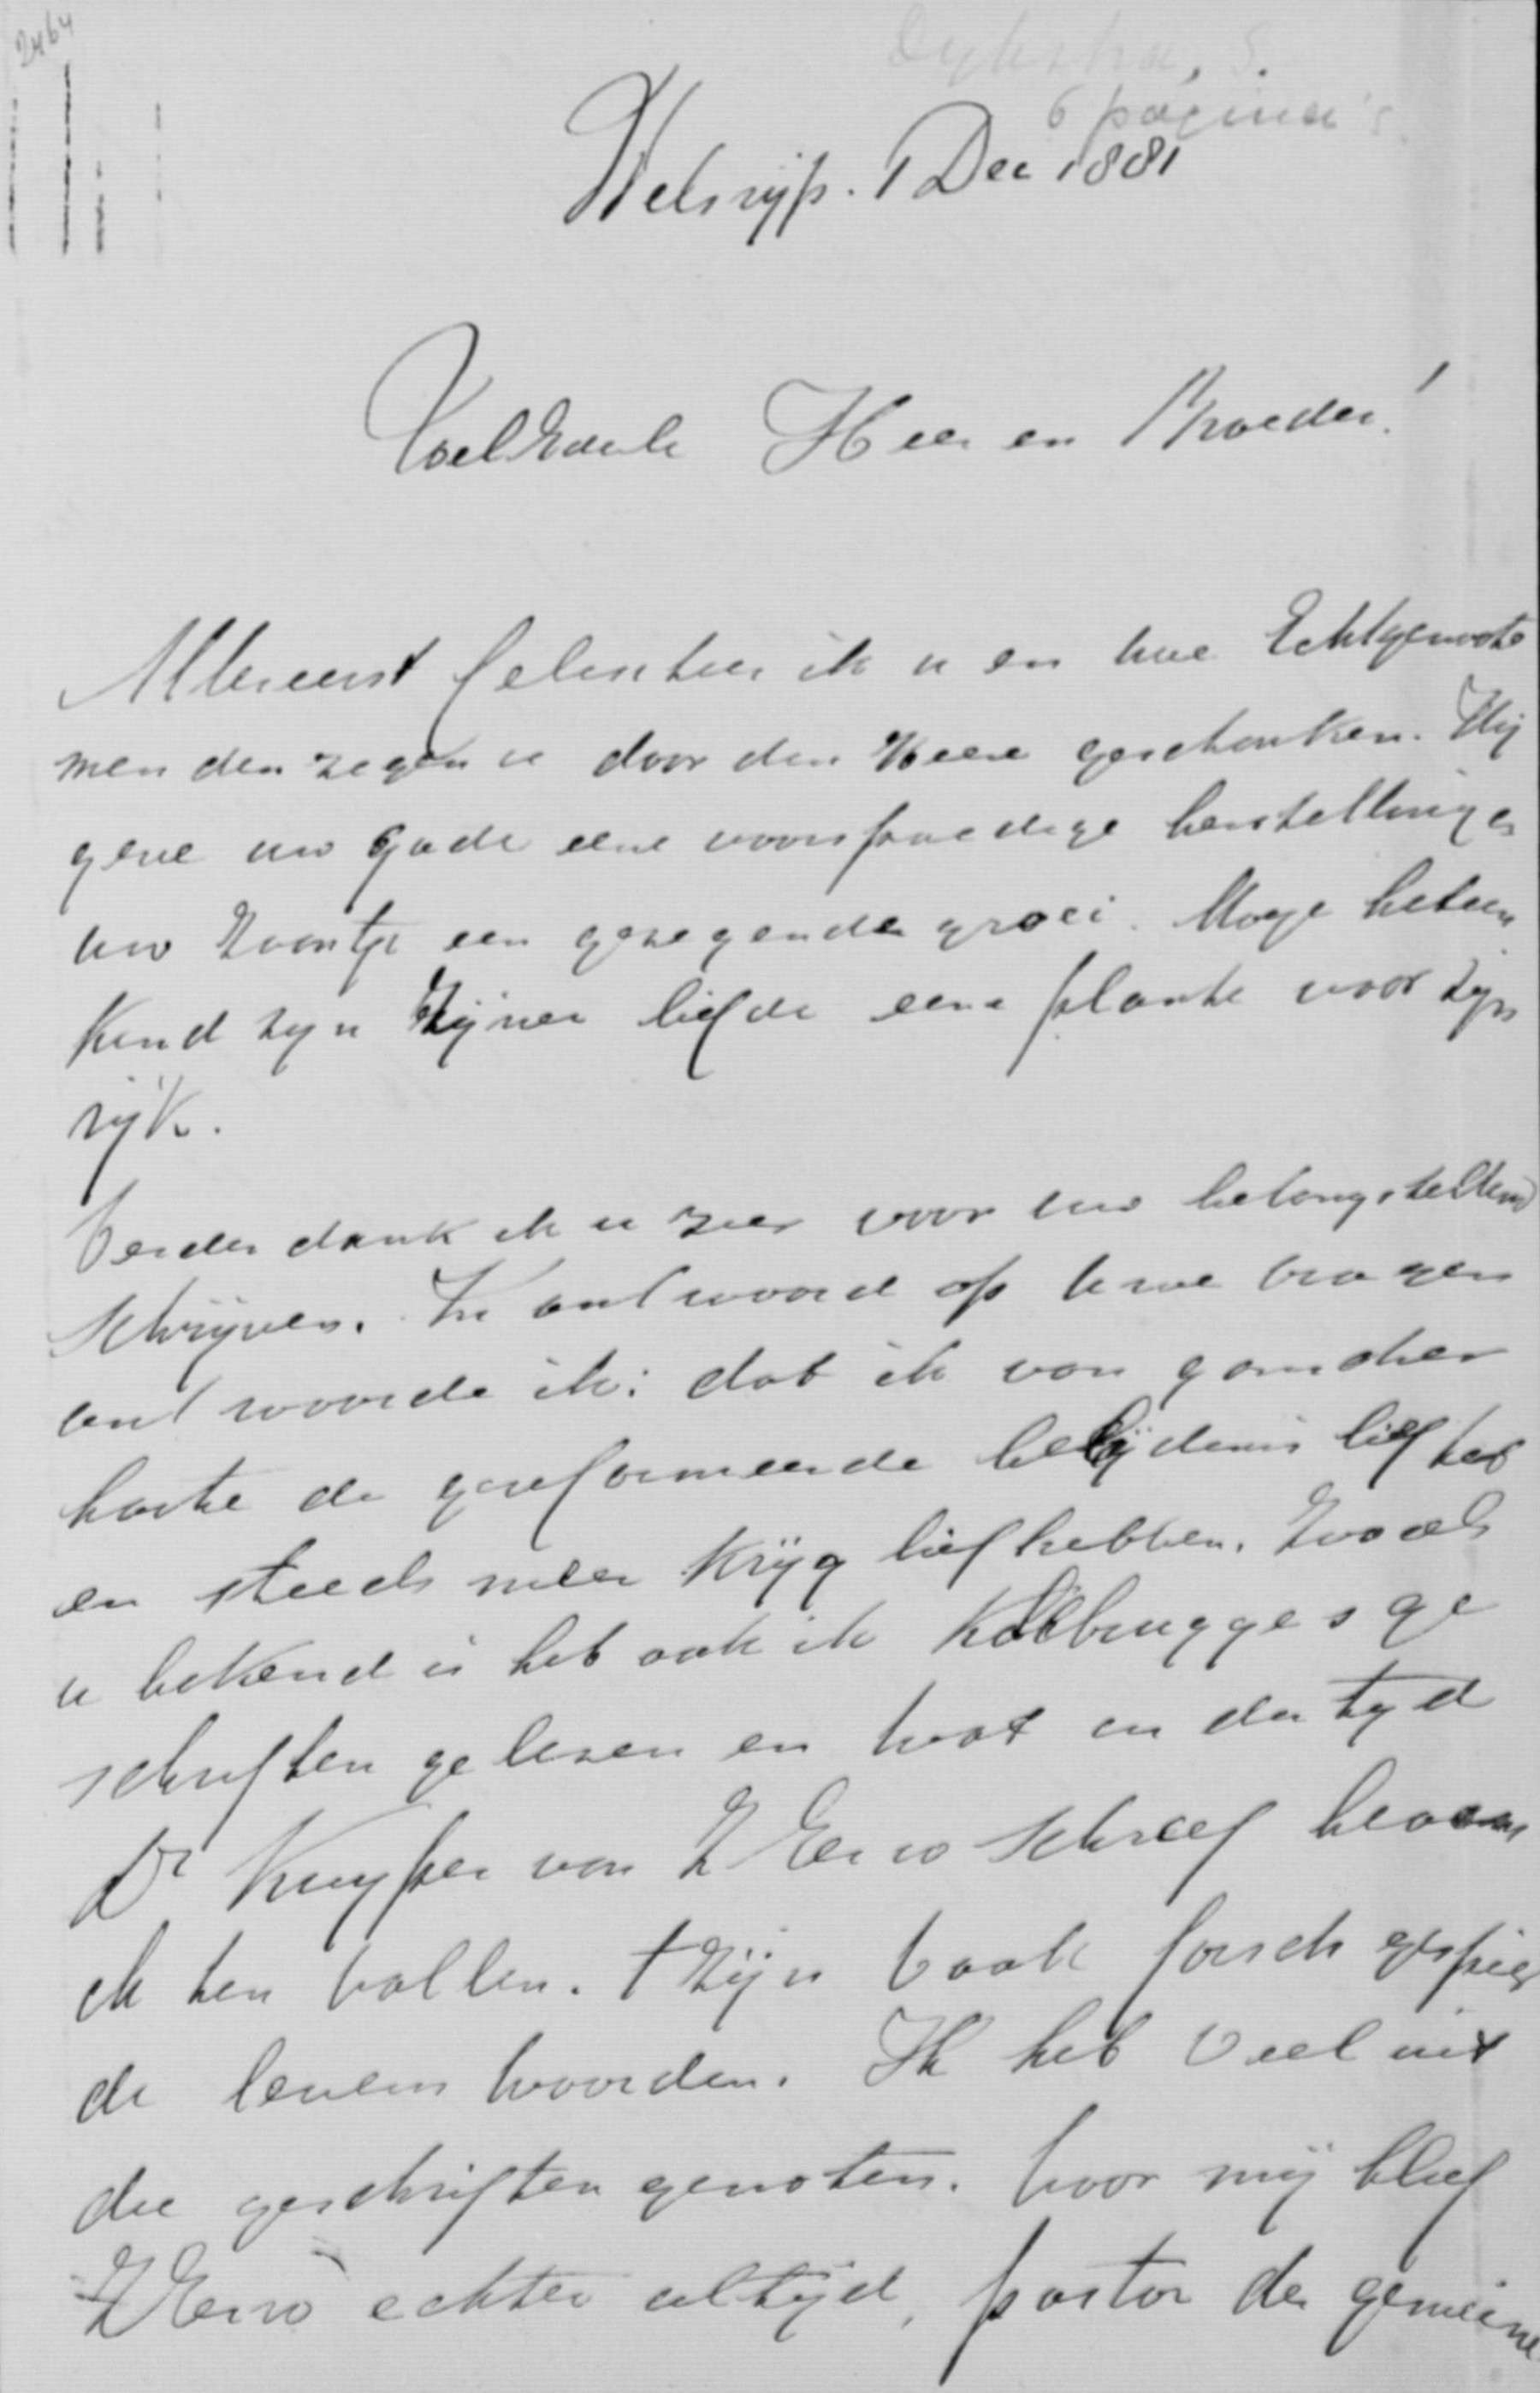 2464
Dykstra, S.
6 pagina's
Welsryp. 1 Dec 1881
WelEerw Heer en Broeder!
Allereerst feliciteer ik u en uwe Echtgenoote
men den zegen u door den Heere geschonken. Hij
geve uw gade eene voorspoedige herstelling en
uw Zoontje een gezegende groei. Moge het een
kind zyn Zijner liefde eene plante voor Zyn
ryk.
Verder dank ik u zeer voor uw belangstellend
schrijven. In antwoord op uwe vragen
antwoorde ik: dat ik van ganscher
harte de gereformeerde belijdenis lief heb
en steeds meer krijg lief hebben. Zooals
u bekend is heb ook ik Kolbrugges ge
schriften gelesen en wat in der tyd
Dr Kuyper van ZEerw schreef beaam
ik ten vollen. t Zijn vaak forsch gespier
de levens woorden. Ik heb veel uit
die geschriften genoten. Voor mij bleef
ZEerw echter altijd, pastor der gemeine